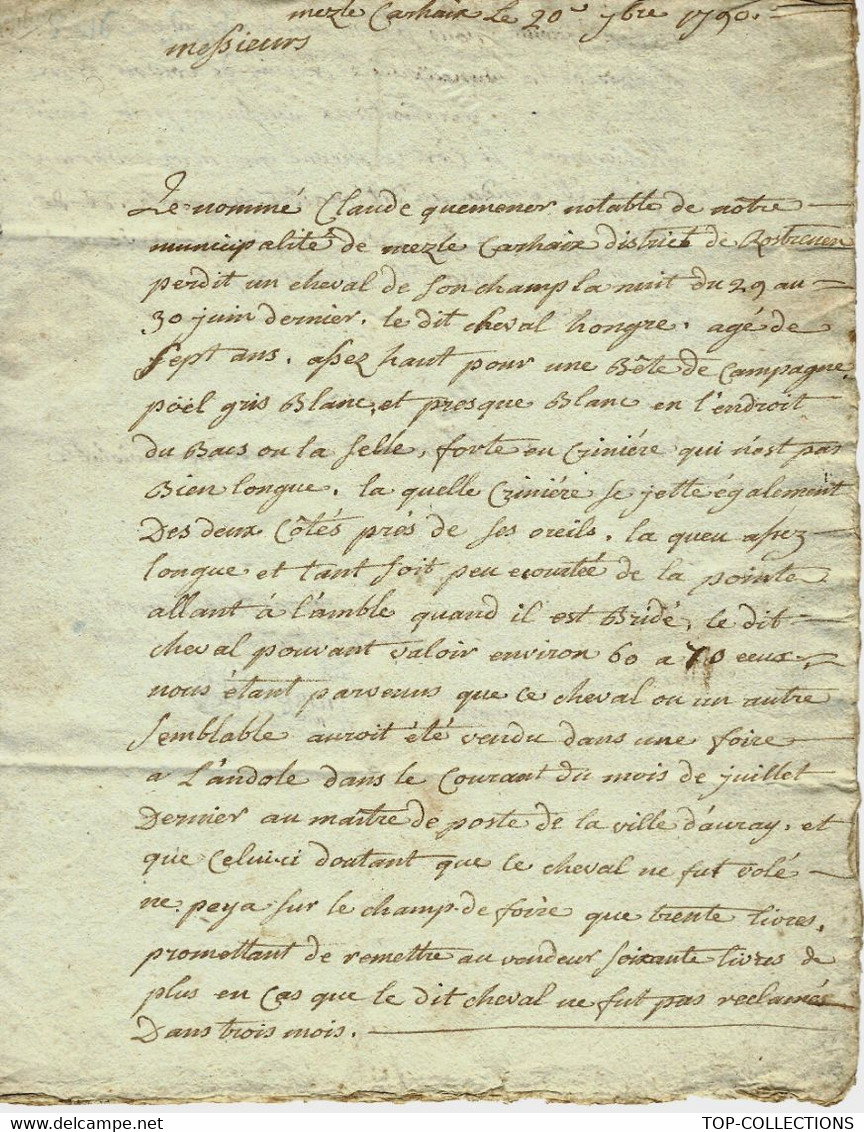 mezle Carhaix le 20e 7bre 1790.
messieurs
Le nommé Claude quemener notable de nôtre
municipalité de mezle Carhaix district de Rostrenen
perdit un cheval de son champ la nuit du 29 au
30 juin dernier. le dit cheval hongre, agé de
sept ans. assez haut pour une Bête de Campagne,
poël gris Blanc, et presque Blanc en l'endroit
du Bacs ou la selle, forte en Criniére qui n'est pas
Bien longue. la quelle Criniére se jette également
Des deux Côtés prés de ses oreils. la queu assez
longue et tant soit peu ecourtée de la pointe
allant á l'amble quand il est Bridé, le dit
cheval pouvant valoir environ 60 a 70 ecus.
nous étant parvenus que ce cheval ou un autre
semblable auroit été vendu dans une foire
a L'andole dans le Courant du mois de juillet
Dernier au maître de poste de la ville d'auray. et
que Celui-ci doutant que le cheval ne fut volé
ne peya sur le champ de foire que trente livres,
promettant de remettre au vendeur soixante livres de
plus en Cas que le dit cheval ne fut pas reclamés
Dans trois mois.
TOP-COLLECTIONS